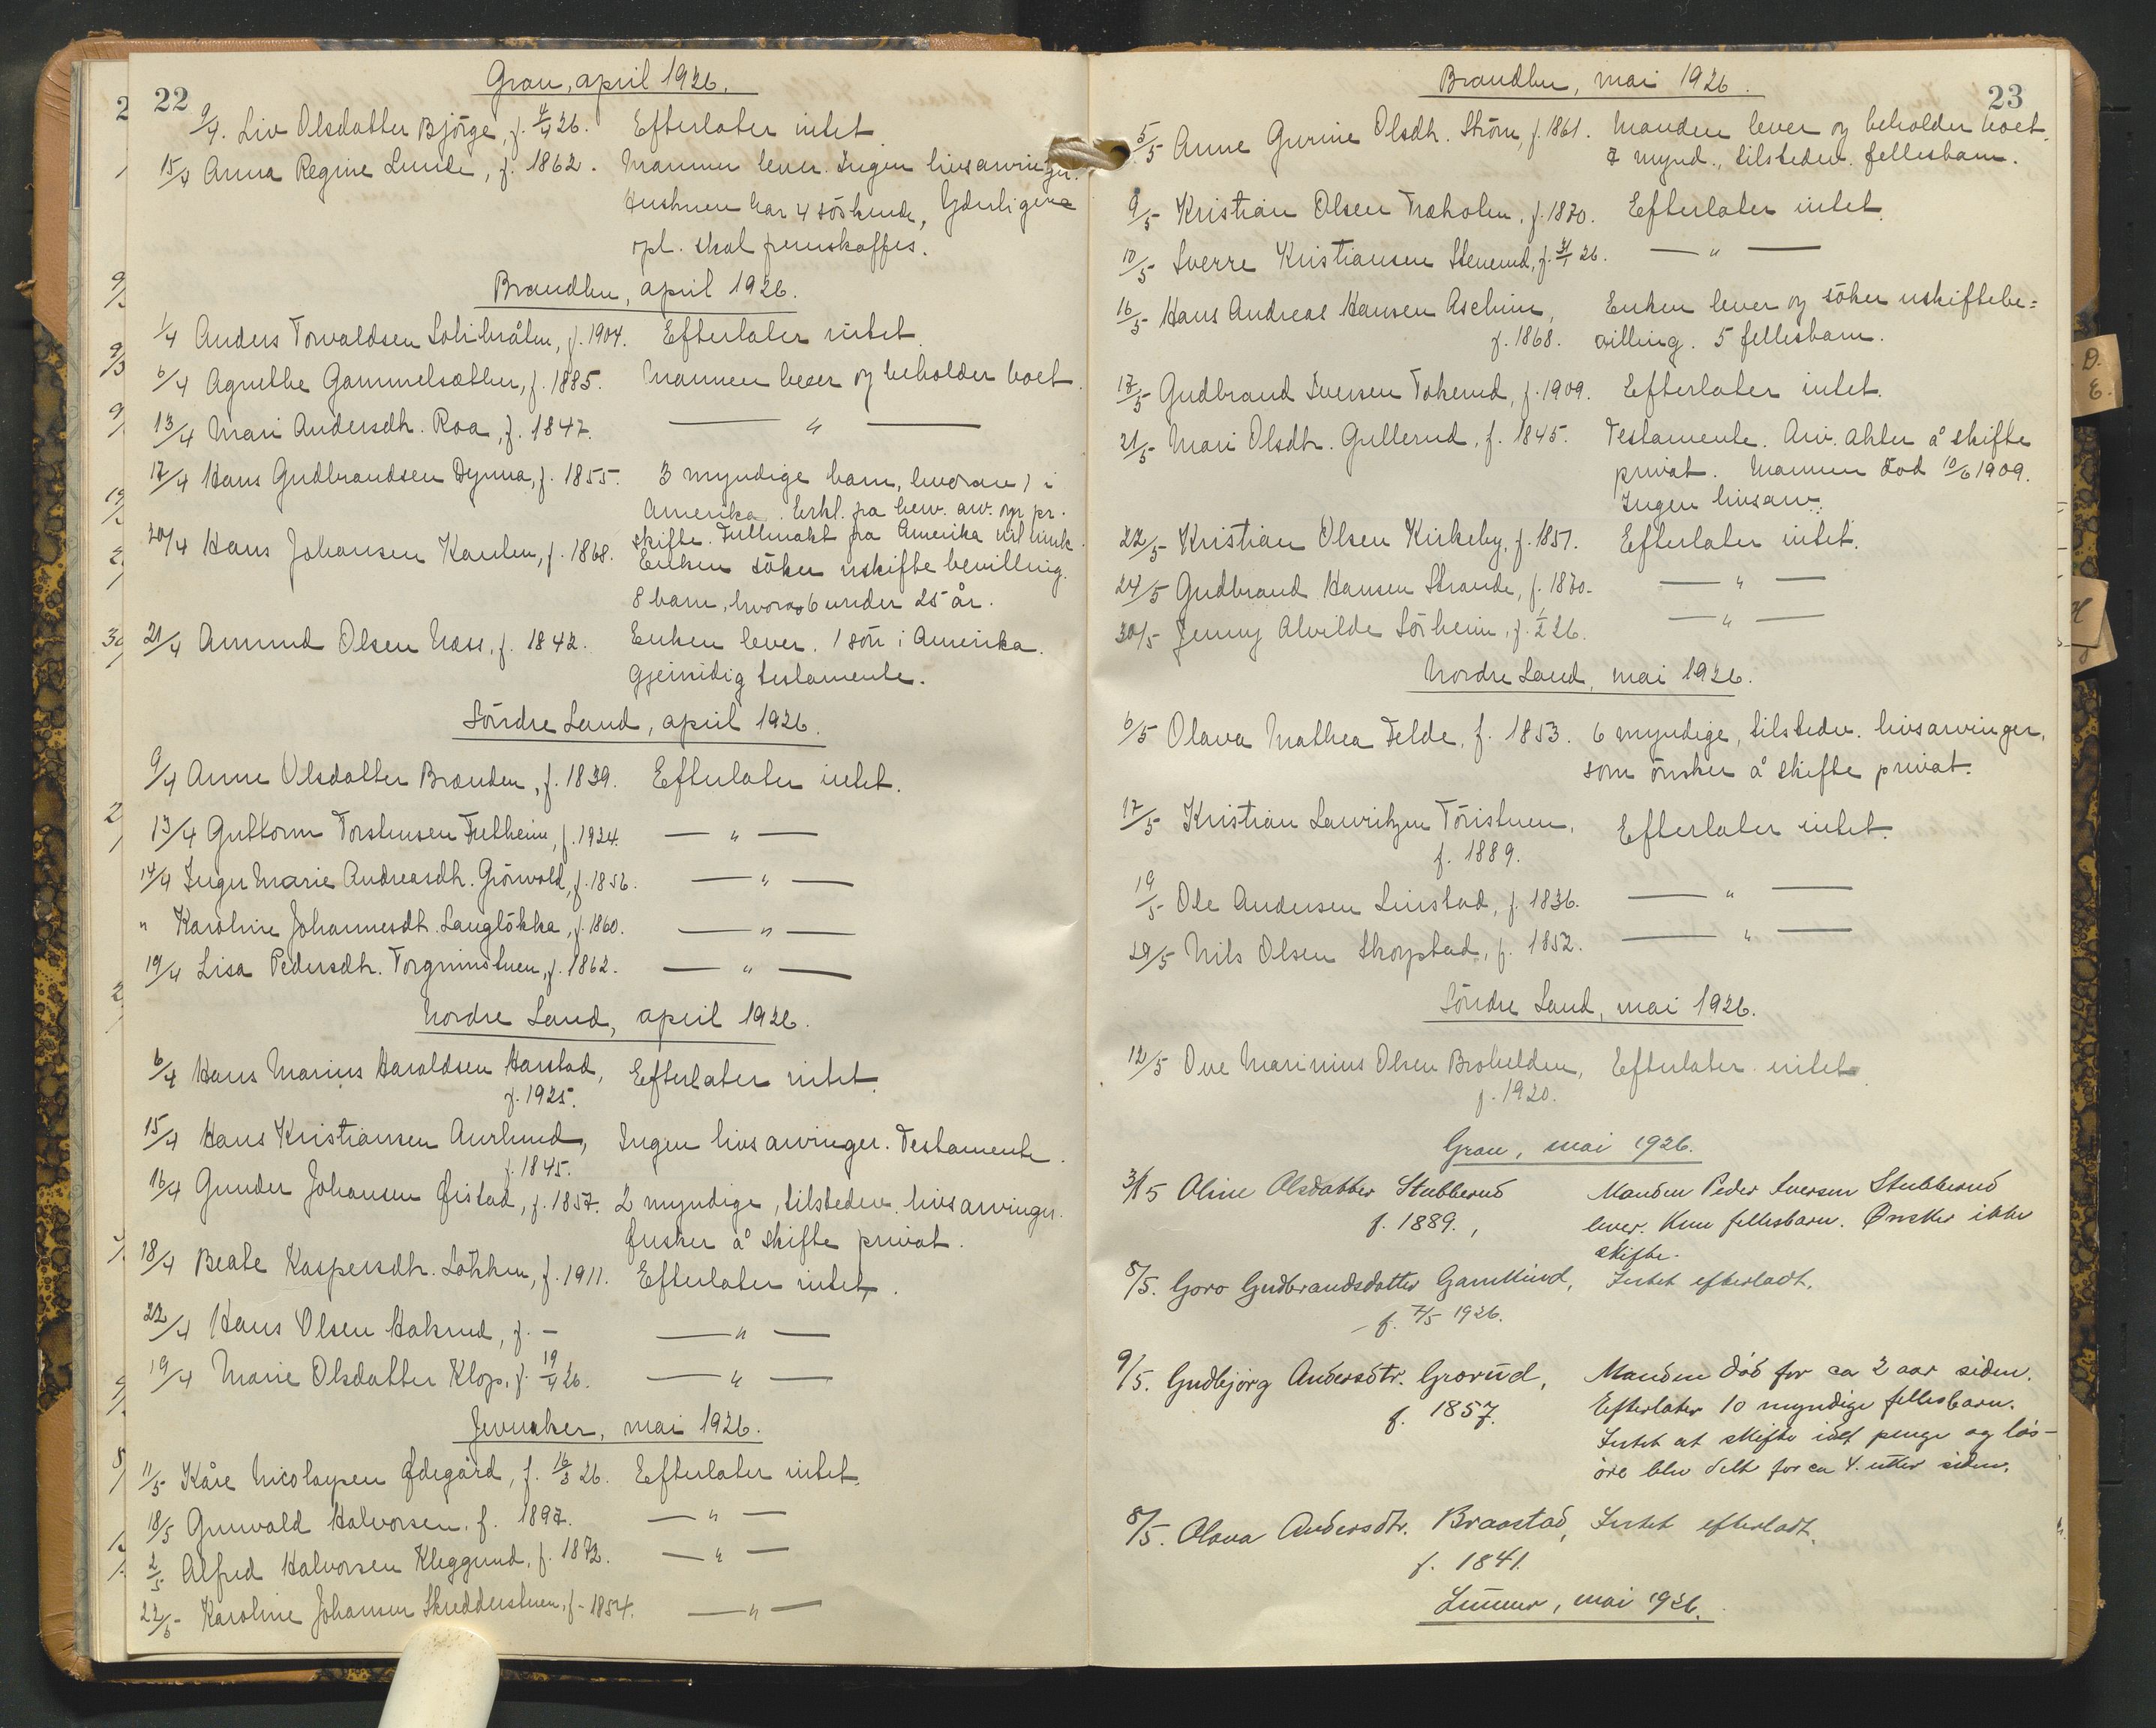 22
Gran, april 1926.
9/4. Liv Olsdatter Bjørge, f. 4/4 26. Efterlater intet.
15/4 Anna Regine Lunde, f. 1862. Mannen lever. Ingen livsarvinger.
Hustruen har 4 söskende, Yderligere
opl. skal fremskaffes.
Brandbu, april 1926.
1/4 Anders Torvaldsen f. 1904. Efterlater intet.
6/4 Agnethe Gammelsæther, f. 1885. Mannen lever og beholder boet.
13/4 Mari Andersdh. Roa, f. 1847. — " —
17/4 Hans Gudbrandsen Dynna, f. 1855. 3 myndige barn, hvorav 1 i
Amerika. Erkl. fra hew. arv. pr.
skifte. Fullmakt fra Amerika vil
20/4 Hans Johansen f. 1868. Enken söker uskifte bevilling.
8 barn, hvorav 6 under 25 år.
21/4 Amund Olsen Næss, f. 1842. Enken lever. 1 sön i Amerika.
Gjensidig testamente.
Söndre Land, april 1926.
9/4 Anne Olsdatter Brænden, f. 1839. Efterlater intet.
13/4 Guttorm Torstensen f. 1924. — " —
14/4 Inger Marie Andreasdh. Grönvold, f. 1856. — " —
" Karoline Johannesdh. Langlökka, f. 1860. — " —
19/4 Lisa Pedersdh. Torgrimstuen, f. 1862. — " —
Nordre Land, april 1926.
6/4 Hans Marius Haraldsen Harstad, Efterlater intet.
f. 1925.
15/4 Hans Kristiansen Aurlund, Ingen livsarvinger. Testamente.
f. 1845.
16/4 Gunder Johansen Øistad, f. 1857. 2 myndige, tilstedev. livsarvinger.
Ønsker å skifte privat.
18/4 Beate Kaspersdh. Løkken, f. 1911. Efterlater intet.
22/4 Hans Olsen Hakrud, f. – — " —
19/4 Marie Olsdatter Klop, f. 19/4 26. — " —
Jevnaker, mai 1926.
11/5 Kåre Nicolaysen Ødegård, f. 16/3 26. Efterlater intet.
18/5 Gunvald Halvorsen, f. 1897. — " —
2/5 Alfred Halvorsen Kleggerud, f. 1872. — " —
22/5 Karoline Johansen Skredderstuen, f. 1854. — " —
23
Brandbu, mai 1926.
5/5 Anne Gurine Olsdh. Ström, f. 1861. Manden lever og beholder boet.
7 mynd., tilstedev. fellesbarn.
9/5 Kristian Olsen Træholen, f. 1870. Efterlater intet.
10/5 Sverre Kristiansen Stenerud, f. 31/1 26. — " —
16/5 Hans Andreas Hansen Aschim, Enken lever og söker uskiftebe=
f. 1868. villing. 5 fellesbarn.
17/5 Gudbrand Iversen Tokerud, f. 1909. Efterlater intet.
21/5 Mari Olsdh. Gullerud, f. 1845. Testamente. Arv. akter å skifte
privat. Mannen död 10/6 1909.
Ingen livsarv.
22/5 Kristian Olsen Kirkeby, f. 1851. Efterlater intet.
24/5 Gudbrand Hansen Strande, f. 1870. — " —
30/5 Jenny Alvilde Sörheim, f. 1/2 26. — " —
Nordre Land, mai 1926.
6/5 Olava Mathea Felde, f. 1853. 6 myndige, tilstedev. livsarvinger,
som önsker å skifte privat.
17/5 Kristian Lauritzen Töristuen, Efterlater intet.
f. 1889.
19/5 Ole Andersen Linstad, f. 1836. — " —
29/5 Nils Olsen Skorpstad, f. 1852. — " —
Söndre Land, mai 1926.
12/5 Ove Marinius Olsen Brohelden, Efterlater intet.
f. 1920.
Gran, mai 1926.
3/5 Oline Olsdatter Stubberud Manden Peder Iversen Stubberud
f. 1889., lever. Kun fellesbarn. Ønsker ikke
skifte.
8/5. Goro Gudbrandsdatter Gamkind, Intet efterladt.
f. 7/5 1926.
9/5. Gudbjørg Andersdtr. Grorud, Manden död for ca 2 aar siden.
f. 1857. Efterlater 10 myndige fellesbarn.
Intet at skifte idet penge og lös-
öre blev delt for ca 4. siden.
8/5. Olava Andersdtr. Braastad, Intet efterladt.
f. 1841.
Lunner, mai 1926.